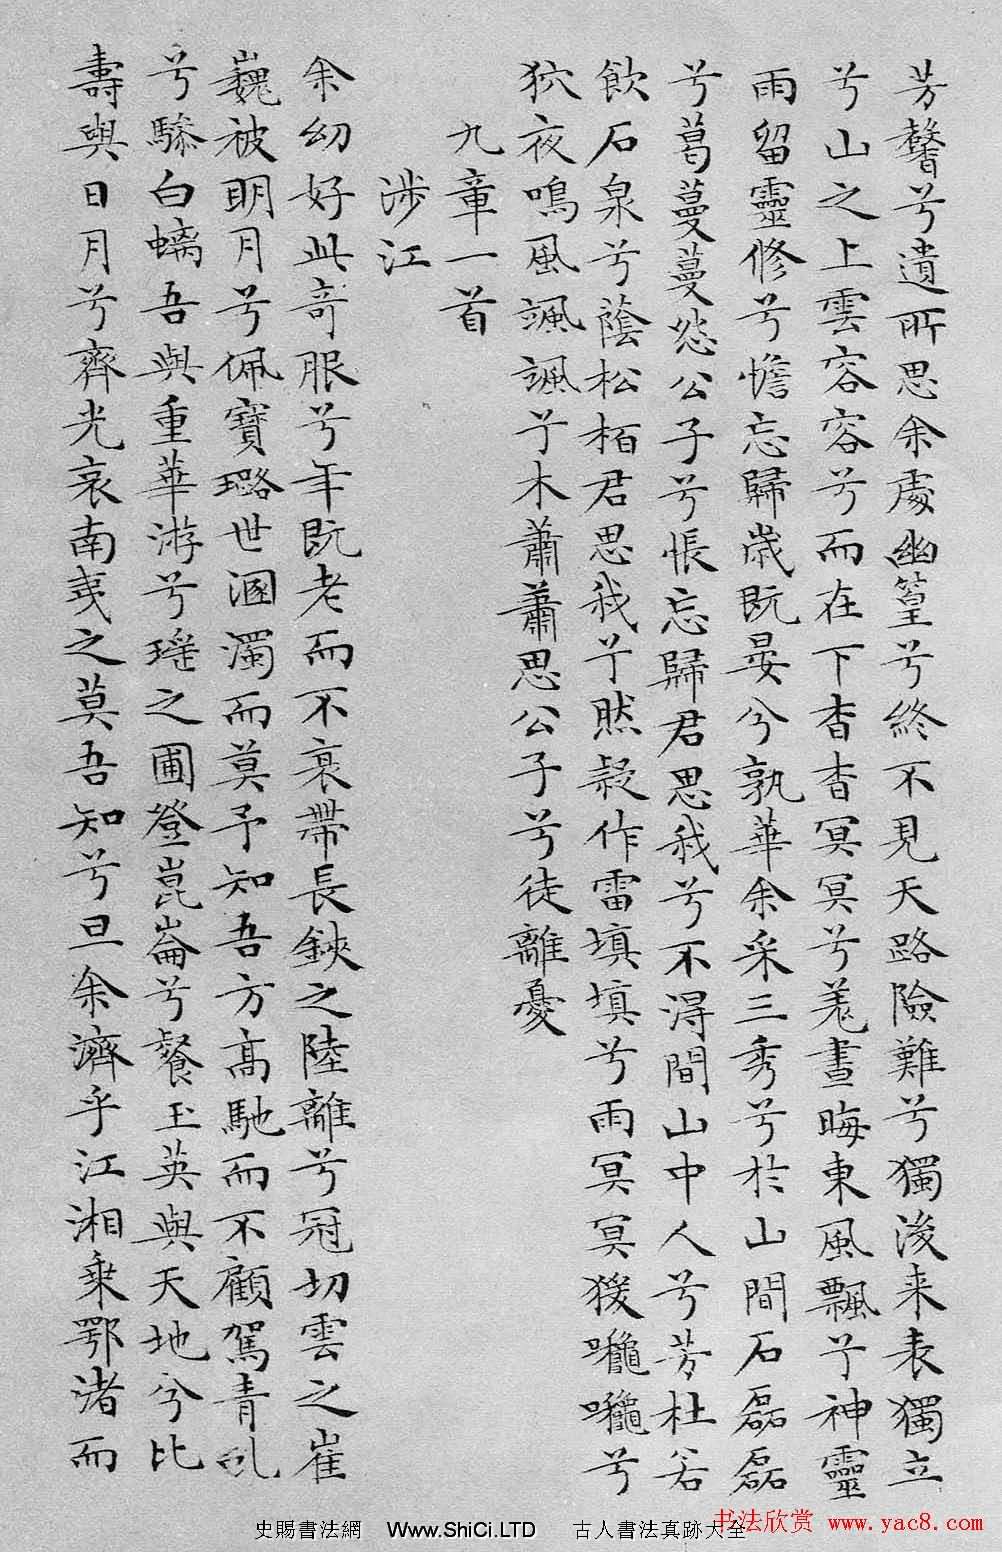 芳馨兮遺所思余處幽篁兮終不見天路險難兮獨後来表獨立
兮山之上雲容容兮而在下杳杳冥冥兮羌晝晦東風飄兮神靈
雨留靈修兮憺忘歸歲既晏兮孰華余采三秀兮於山間石磊磊
兮葛蔓蔓怨公子兮悵忘歸君思我兮不得間山中人兮芳杜若
飲石泉兮蔭松柏君思我兮然疑作雷填填兮雨冥冥猨嚨嚨兮
狖夜鳴風颯颯兮木蕭蕭思公子兮徒離憂
九章一首
涉江
余幼好此奇服兮年既老而不衰帶長鋏之陸離兮冠切雲之崔
巍被明月兮佩寶璐世溷濁而莫予知吾方高馳而不顧駕青虬
兮驂白螭吾與重華游兮瑤之圃登崑崙兮餐玉英與天地兮比
壽與日月兮齊光哀南夷之莫吾知兮旦余濟乎江湘乘鄂渚而
史賜書法網 Www.ShiCi.LTD 古人書法真跡大全
书法欣赏 www.yac8.com